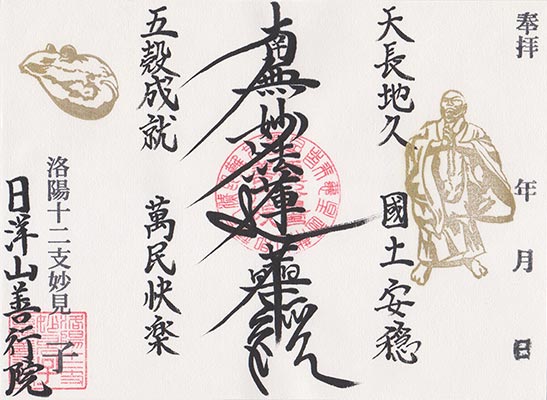 奉拝　年　月　日
天長地久　國土安穏
南無妙法蓮華経
五穀成就　萬民快楽
洛陽十二支妙見　子
日洋山善行院